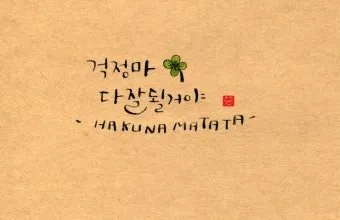 걱정마
다잘될거야
- HAKUNA MATATA -